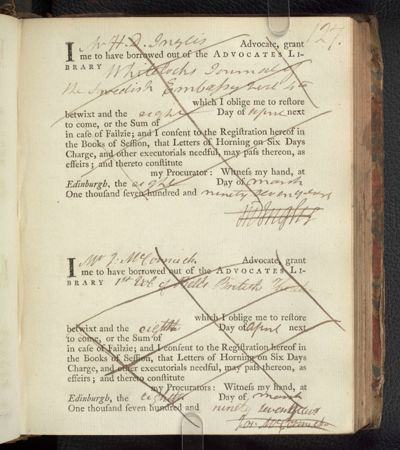 127.
I Mr H. D. Inglis Advocate, grant
me to have borrowed out of the ADVOCATES LI-
BRARY Whitelocks Journal of
the Swedish Embassy
which I oblige me to reſtore
betwixt and the eight Day of April next
to come, or the Sum of
in caſe of Failzie; and I conſent to the Regiſtration hereof in
the Books of Seſſion, that Letters of Horning on Six Days
Charge, and other executorials needful, may paſs thereon, as
effeirs; and thereto conſtitute
my Procurator: Witneſs my hand, at
Edinburgh, the eight Day of March
One thouſand ſeven hundred and ninety seven years
HD Inglis
I Mr J. McCormick Advocate, grant
me to have borrowed out of the ADVOCATES LI-
BRARY 1st Vol. of Bell's British
which I oblige me to reſtore
betwixt and the eighth Day of April next
to come, or the Sum of
in caſe of Failzie; and I conſent to the Regiſtration hereof in
the Books of Seſſion, that Letters of Horning on Six Days
Charge, and other executorials needful, may paſs thereon, as
effeirs; and thereto conſtitute
my Procurators: Witneſs my hand, at
Edinburgh, the eighth Day of March
One thouſand ſeven hundred and ninety seven years
Jos. McCormick